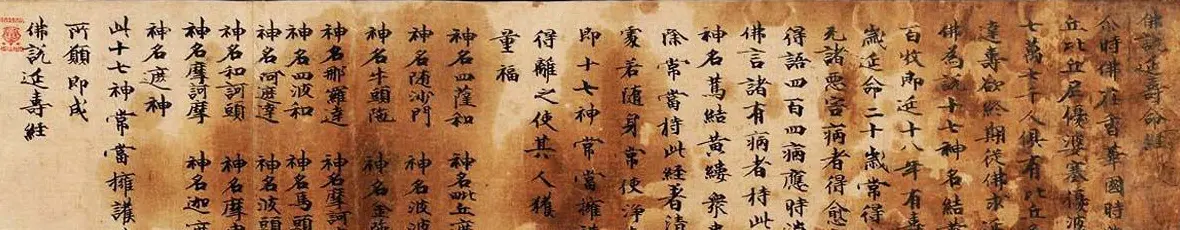 佛説延壽命經
尒時佛在香華國時
丘比丘尼優婆塞優波
七萬七千人俱有比丘
達壽欲終期從佛求延
佛為説十七神名結黃
百收即延十八年有
歲延命二十歲常得
无諸惡害病者得愈
得語四百四病應時消
佛言諸有病者持此
神名萬結黃縷衆
除常當持此經者清
家若隨身常使淨
即十七神常當擁
得離之使其人獲
量福
神名四薩和 神名毗丘
神名随沙門 神名波
神名牛頭陁 神名金
神名那羅達 神名摩訶
神名四波和 神名馬頭
神名阿麼達 神名波頭
神名和訶頭 神名摩
神名摩訶摩 神名迦
神名麼神
此十七神常當擁護
所願即成
佛説延壽經